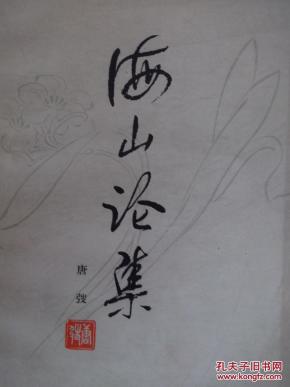 海山论集
唐弢
唐弢
孔夫子旧书网
KONGFZ.COM